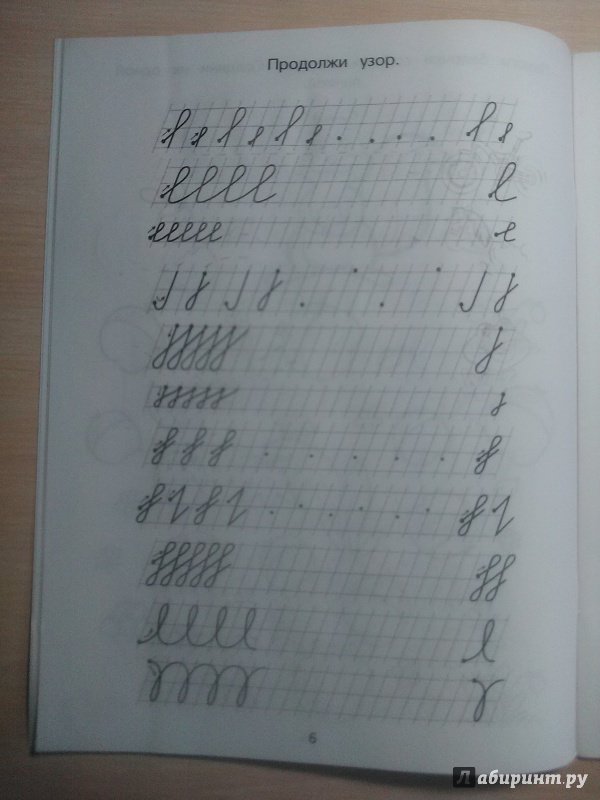 Продолжи узор.
6
Лабиринт.ру